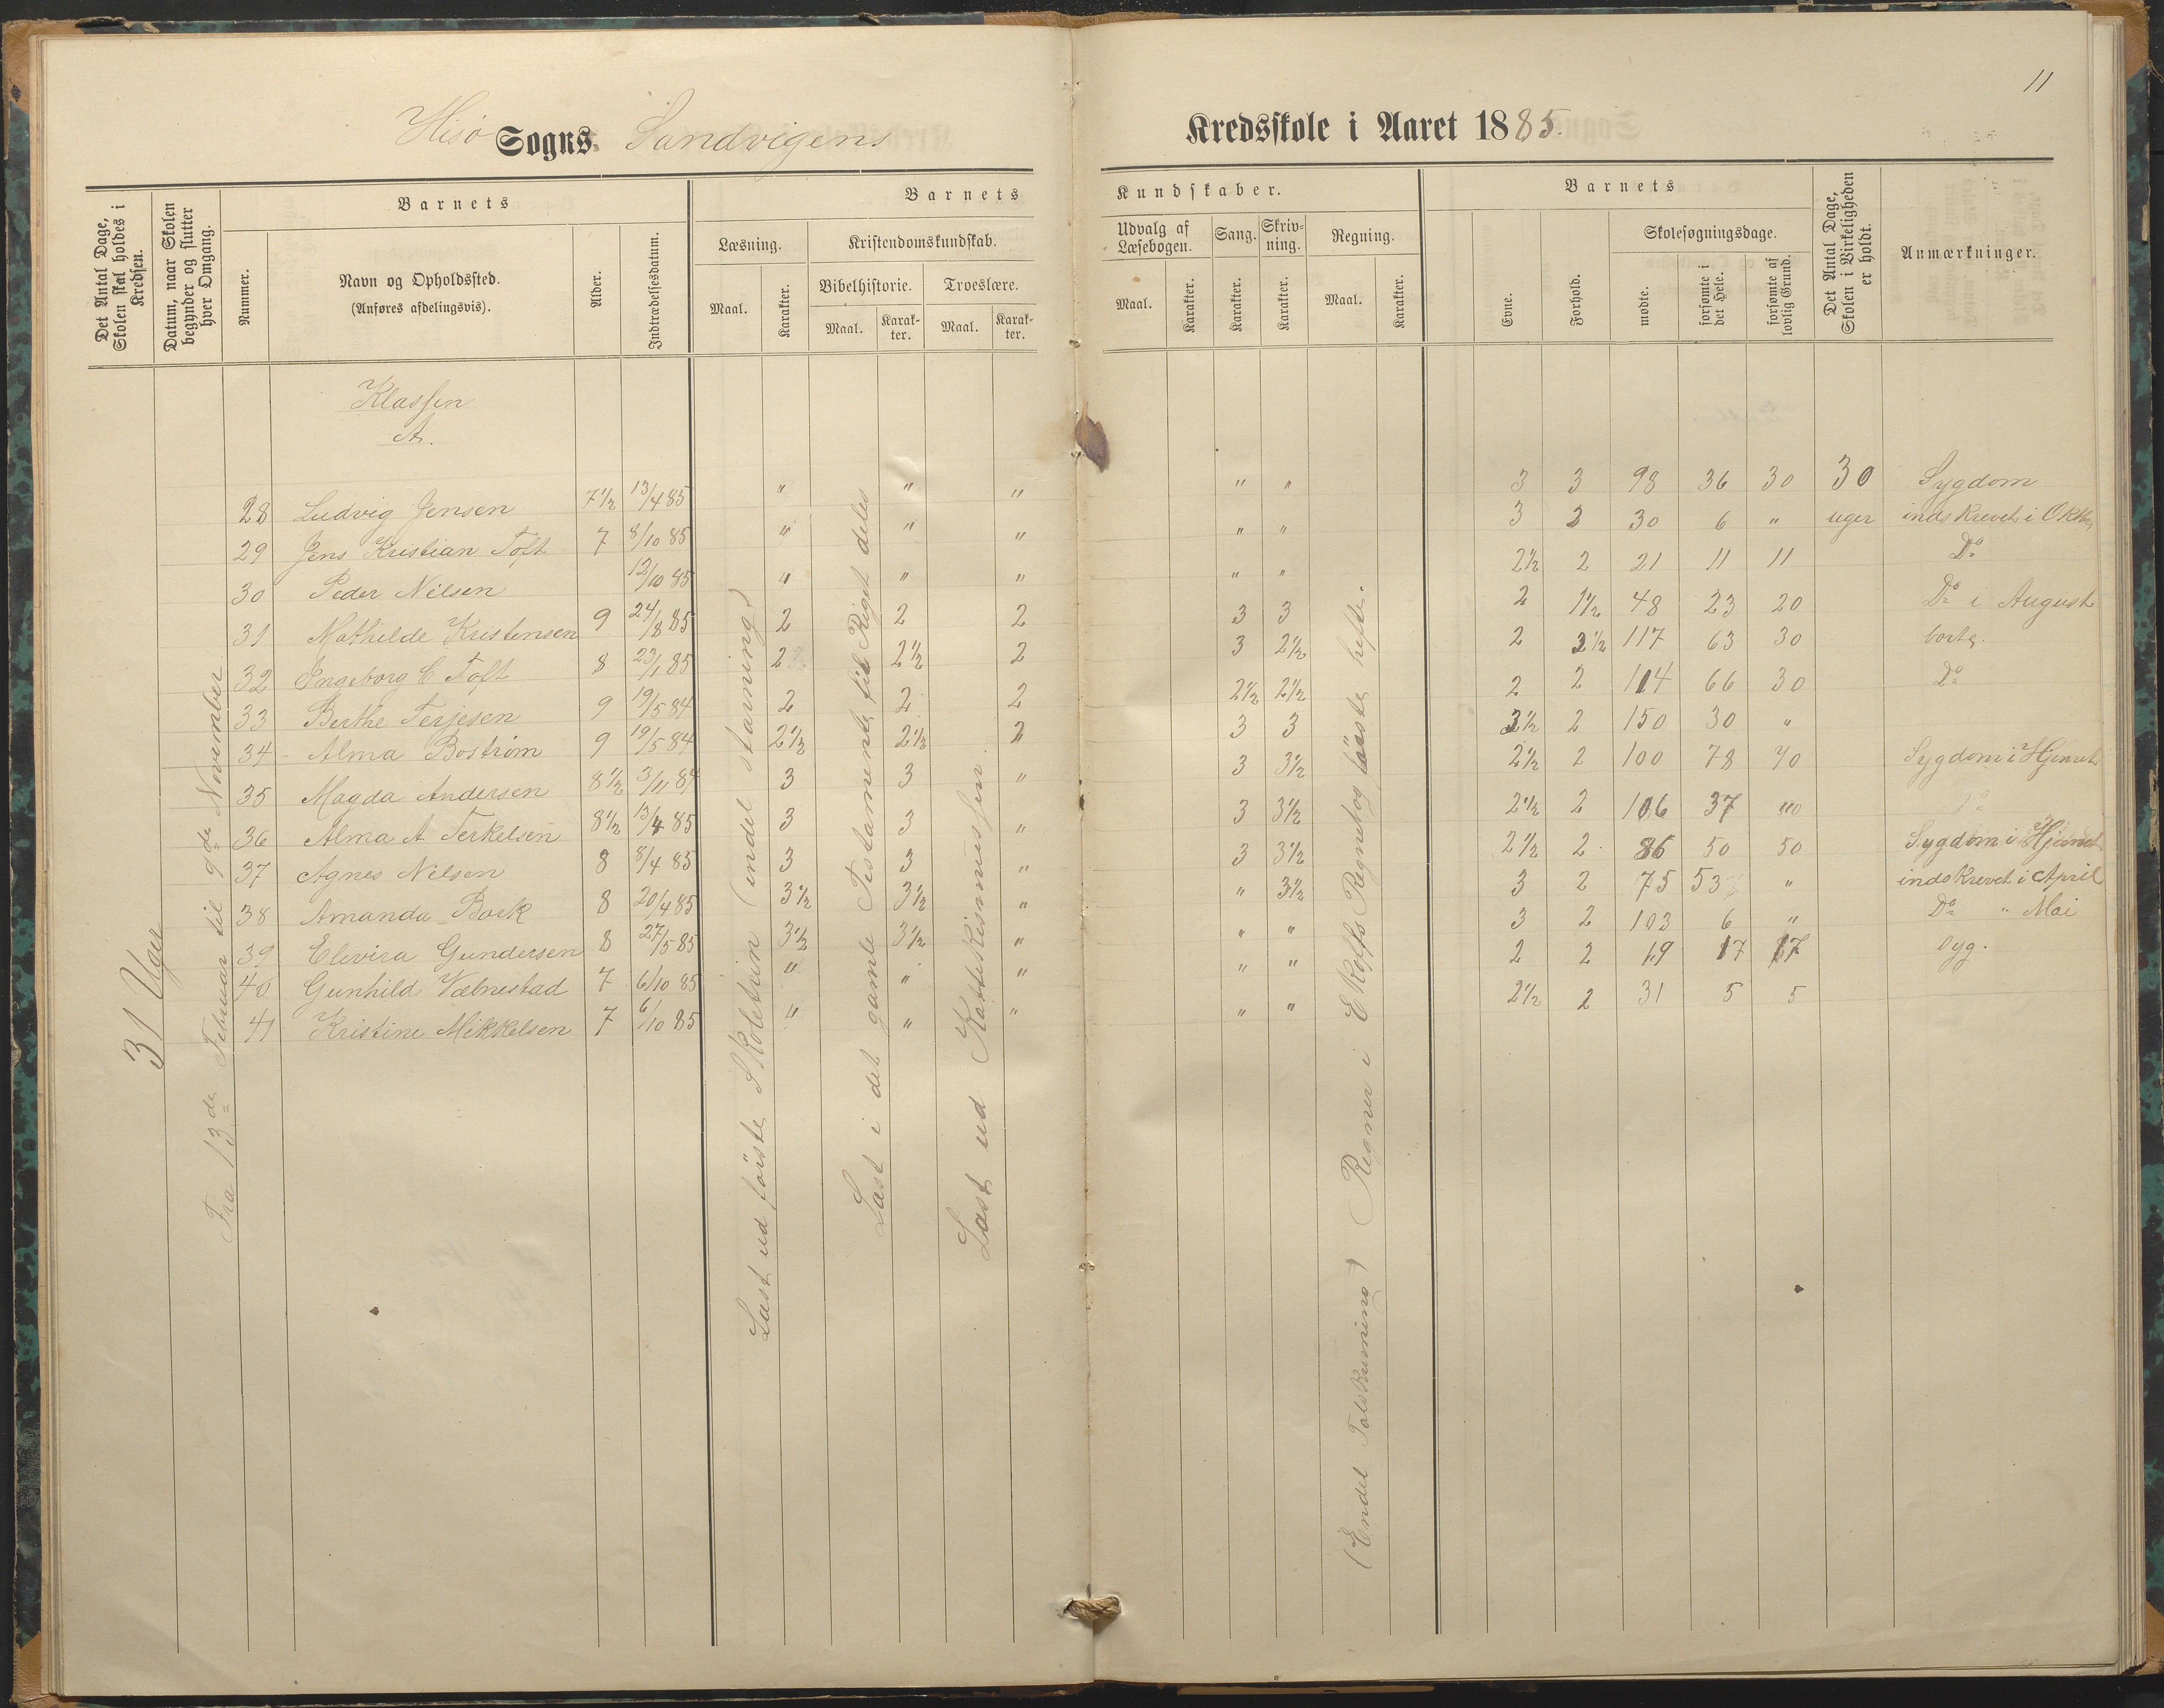 11
Hisö Sogns Sandvigens Kredsskole i Aaret 1885.
Det Antal Dage, Skolen skal holdes i Kredsen.
Datum, naar Skolen begynder og slutter hver Omgang.
Barnets
Nummer.
Navn og Opholdssted.
(Anføres afdelingsvis).
Alder.
Indtrædelsesdatum.
Barnets Kundskaber.
Læsning. Kristendomskundskab. Udvalg af Læsebogen. Sang. Skrivning. Regning.
Bibelhistorie. Troeslære.
Maal. Karakter. Maal. Karakter. Maal. Karakter. Maal. Karakter. Karakter. Karakter. Maal. Karakter.
Barnets
Evne. Forhold. Skolesøgningsdage.
mødte. forsømte i det Hele. forsømte af lovlig Grund.
Det Antal Dage, Skolen i Virkeligheden er holdt.
Anmærkninger.
31 Uger
Fra 13de Februar til 9de November
Klassen
A.
28 Ludvig Jensen 7½ 13/4 85 " " " " " 3 3 98 36 30 30 Sygdom
29 Jens Kristian Toft 7 8/10 85 " " " " " 3 3 30 6 " uger indskrevet i Oktbr
30 Peder Nilsen 12/10 85 " " " " " 2½ 2 21 11 11 Do
31 Mathilde Kristensen 9 24/8 85 2 2 2 3 3 2 1½ 48 23 20 Do i August
32 Ingeborg C Toft 8 23/1 85 2 2½ 2 3 2½ 2 2½ 117 63 30 borte.
33 Berthe Terjesen 9 19/5 84 2 2 2 2½ 2½ 2 2 114 66 30 Do
34 Alma Boström 9 19/5 84 2½ 2½ 2 3 3 3½ 2 150 30 "
35 Magda Andersen 8½ 3/11 84 3 3 " 3 3½ 2½ 2 100 78 70 Sygdom i Hjemet
36 Alma A Terkelsen 8½ 13/4 85 3 3 " 3 3½ 2½ 2 106 37 Do
37 Agnes Nilsen 8 8/4 85 3 3 " 3 3½ 2½ 2 86 50 50 Sygdom i Hjemet
38 Amanda Bork 8 20/4 85 3½ 3½ " " 3½ 3 2 75 53 " indskrevet i April
39 Elevira Gundersen 8 27/5 85 3½ 3½ " " " 3 2 103 6 " Do " Mai
40 Gunhild Væbnestad 7 6/10 85 " " " " " 2 2 19 17 17 syg.
41 Kristine Mikkelsen 7 6/10 85 " " " " " 2½ 2 31 5 5
Læst ud förste Skoletrin (endel stavning)
Læst i det gamle Testamente til Riget deles
Læst ud Katekismussen
(Endel Talskrivning) Regner i Ekoffs Regnebog förste hefte.